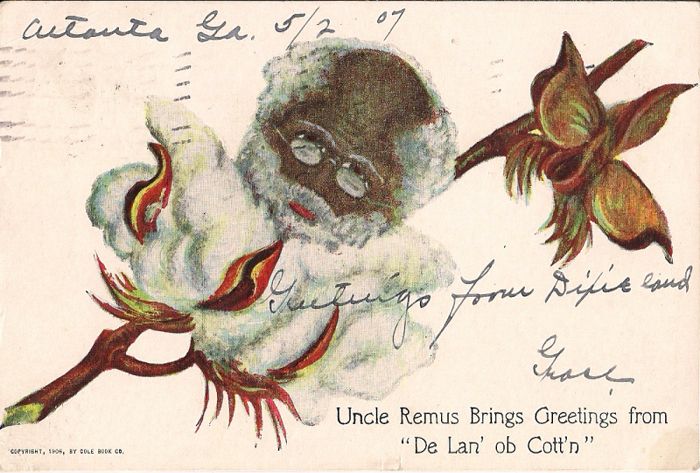 Atlanta Ga. 5/2 07
Greetings from Dixie land
Uncle Remus Brings Greetings from
"De Lan' ob Cott'n"
COPYRIGHT, 1906, BY COLE BOOK CO.